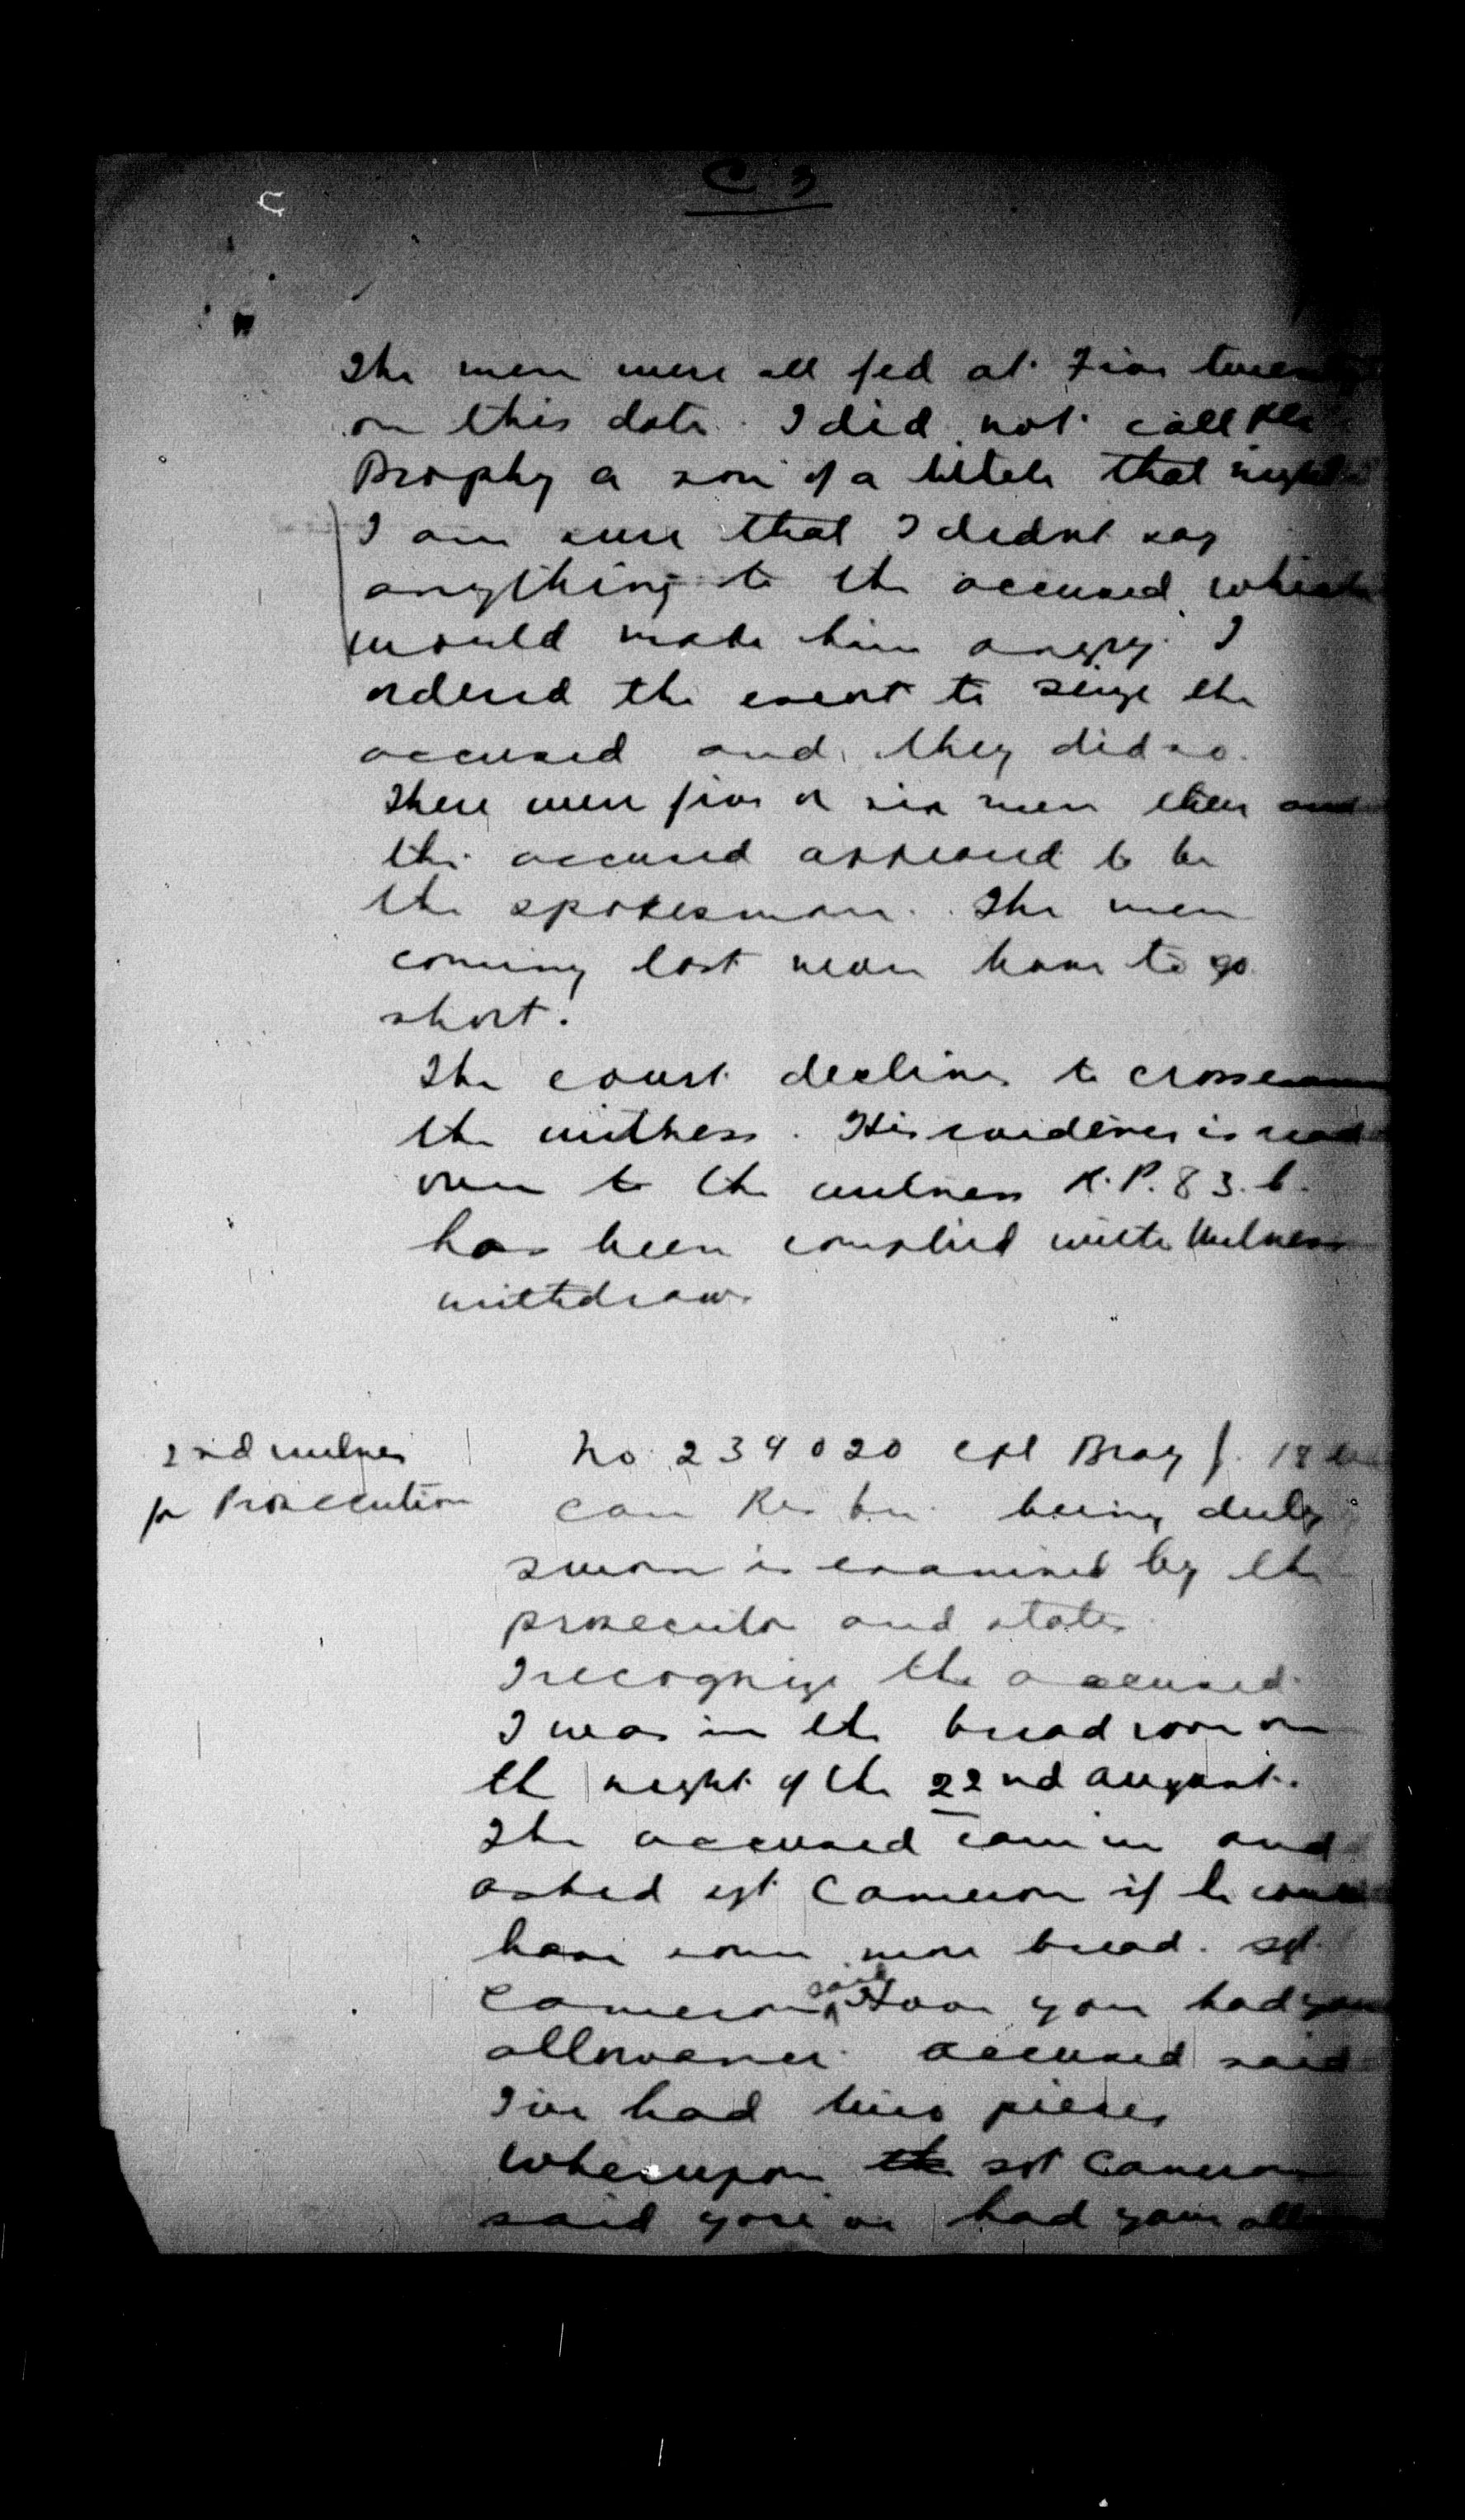 C 3
The men were all fed at Five twenty
on this date. I did not call Pte
Brophy a son of a bitch that night
I am sure that I didnt say
anything to the accused which
would make him angry. I
ordered the escort to seize the
accused and they did so.
There were five or six men there and
the accused appeared to be
the spokesman. The men
coming last never have to go
short.
The court declines to cross examine
the witness. His evidence is read
over to the witness R.P. 83.b.
has been complied with Witness
withdraws
2nd witness
for Prosecution
No 234020 cpl Bray J. 12
Can Res bn. being duly
sworn is examined by the
prosecutor and states
I recognize the accused.
I was in the bread room on
the night of the 22nd August.
The accused came in and
asked sgt Cameron if he could
have some more bread. sgt
Cameron said Have you had your
allowance. accused said
I've had two pieces
whereupon the sgt Cameron
said you've had your